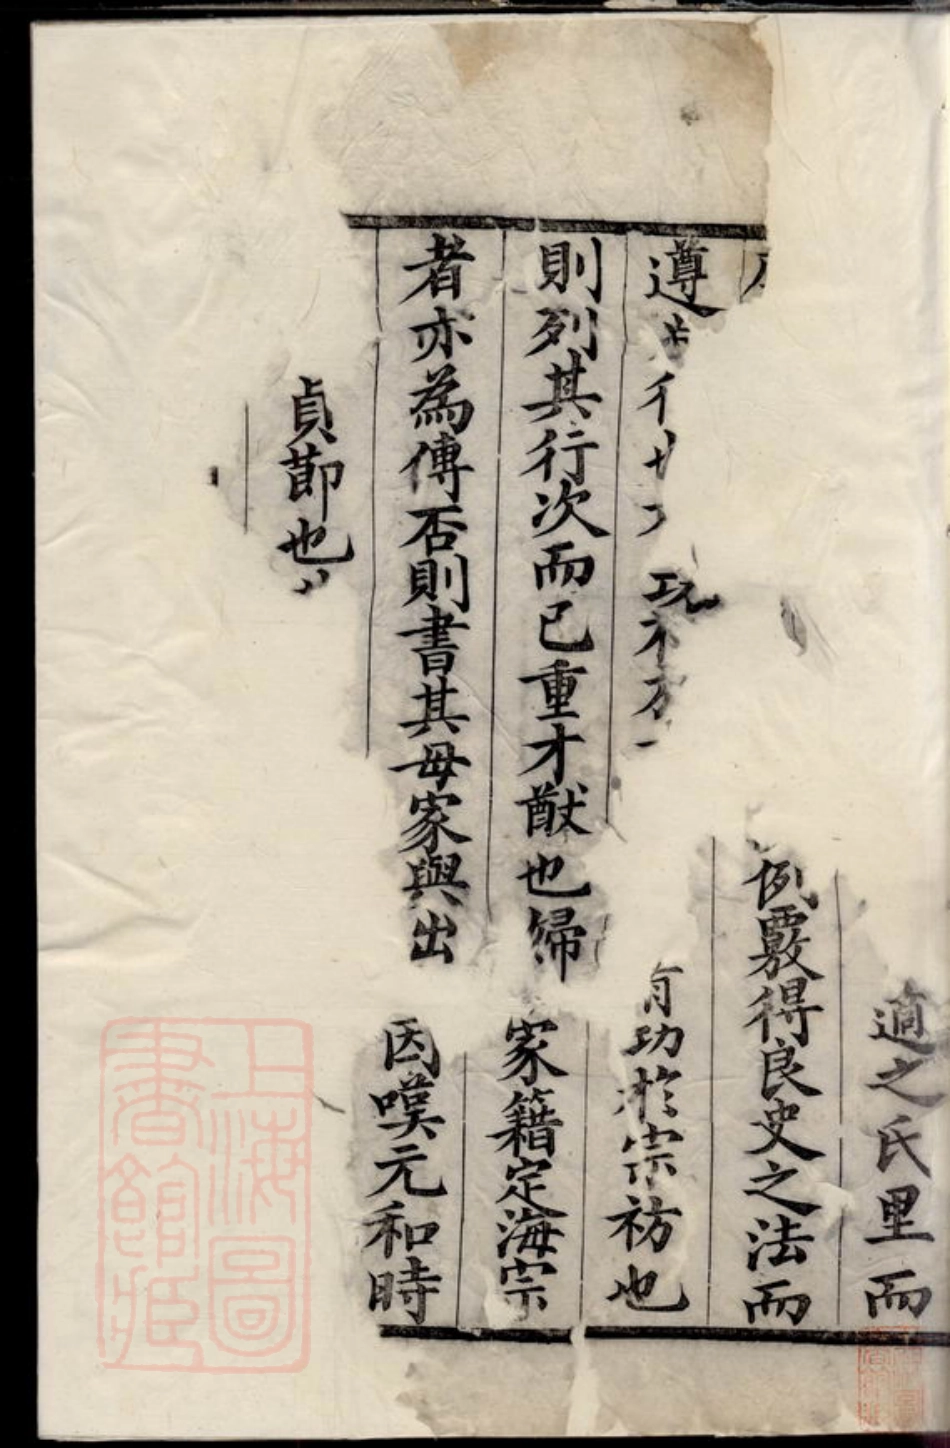 適之氏里而
例覈得良史之法而
遵
有功於宗祊也
則列其行次而已重才猷也歸
家籍定海宗
者亦為傳否則書其母家與出
因嘆元和時
貞節也
上海圖書館藏